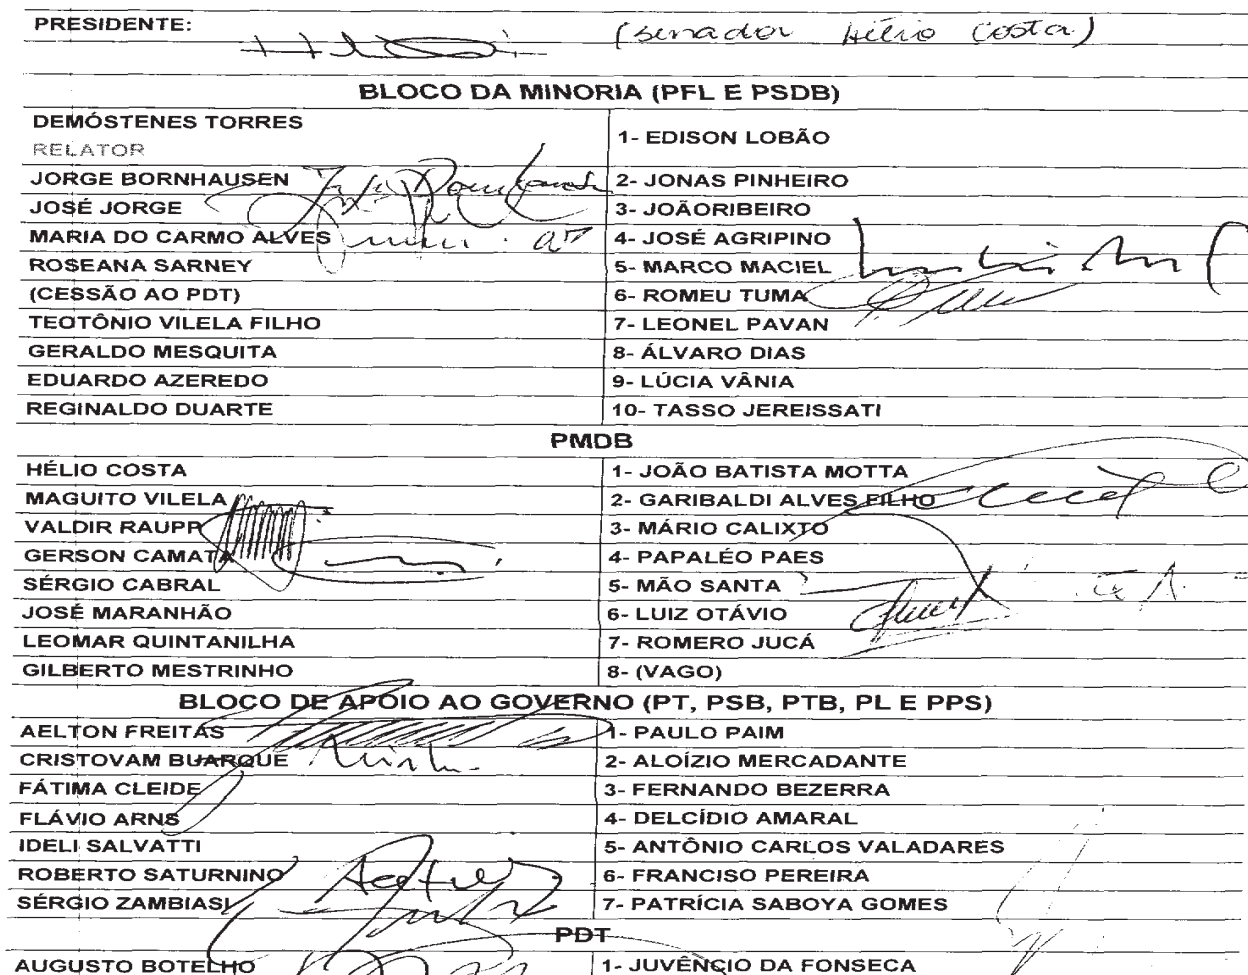 PRESIDENTE: (senador Hélio Costa)
BLOCO DA MINORIA (PFL E PSDB)
DEMÓSTENES TORRES
RELATOR
1- EDISON LOBÃO
JORGE BORNHAUSEN 2- JONAS PINHEIRO
JOSÉ JORGE 3- JOÃORIBEIRO
MARIA DO CARMO ALVES 4- JOSÉ AGRIPINO
ROSEANA SARNEY 5- MARCO MACIEL
(CESSÃO AO PDT) 6- ROMEU TUMA
TEOTÔNIO VILELA FILHO 7- LEONEL PAVAN
GERALDO MESQUITA 8- ÁLVARO DIAS
EDUARDO AZEREDO 9- LÚCIA VÂNIA
REGINALDO DUARTE 10- TASSO JEREISSATI
PMDB
HÉLIO COSTA 1- JOÃO BATISTA MOTTA
MAGUITO VILELA 2- GARIBALDI ALVES FILHO
VALDIR RAUPP 3- MÁRIO CALIXTO
GERSON CAMATA 4- PAPALÉO PAES
SÉRGIO CABRAL 5- MÃO SANTA
JOSÉ MARANHÃO 6- LUIZ OTÁVIO
LEOMAR QUINTANILHA 7- ROMERO JUCÁ
GILBERTO MESTRINHO 8- (VAGO)
BLOCO DE APOIO AO GOVERNO (PT, PSB, PTB, PL E PPS)
AELTON FREITAS 1- PAULO PAIM
CRISTOVAM BUARQUE 2- ALOÍZIO MERCADANTE
FÁTIMA CLEIDE 3- FERNANDO BEZERRA
FLÁVIO ARNS 4- DELCÍDIO AMARAL
IDELI SALVATTI 5- ANTÔNIO CARLOS VALADARES
ROBERTO SATURNINO 6- FRANCISO PEREIRA
SÉRGIO ZAMBIASI 7- PATRÍCIA SABOYA GOMES
PDT
AUGUSTO BOTELHO 1- JUVÊNCIO DA FONSECA